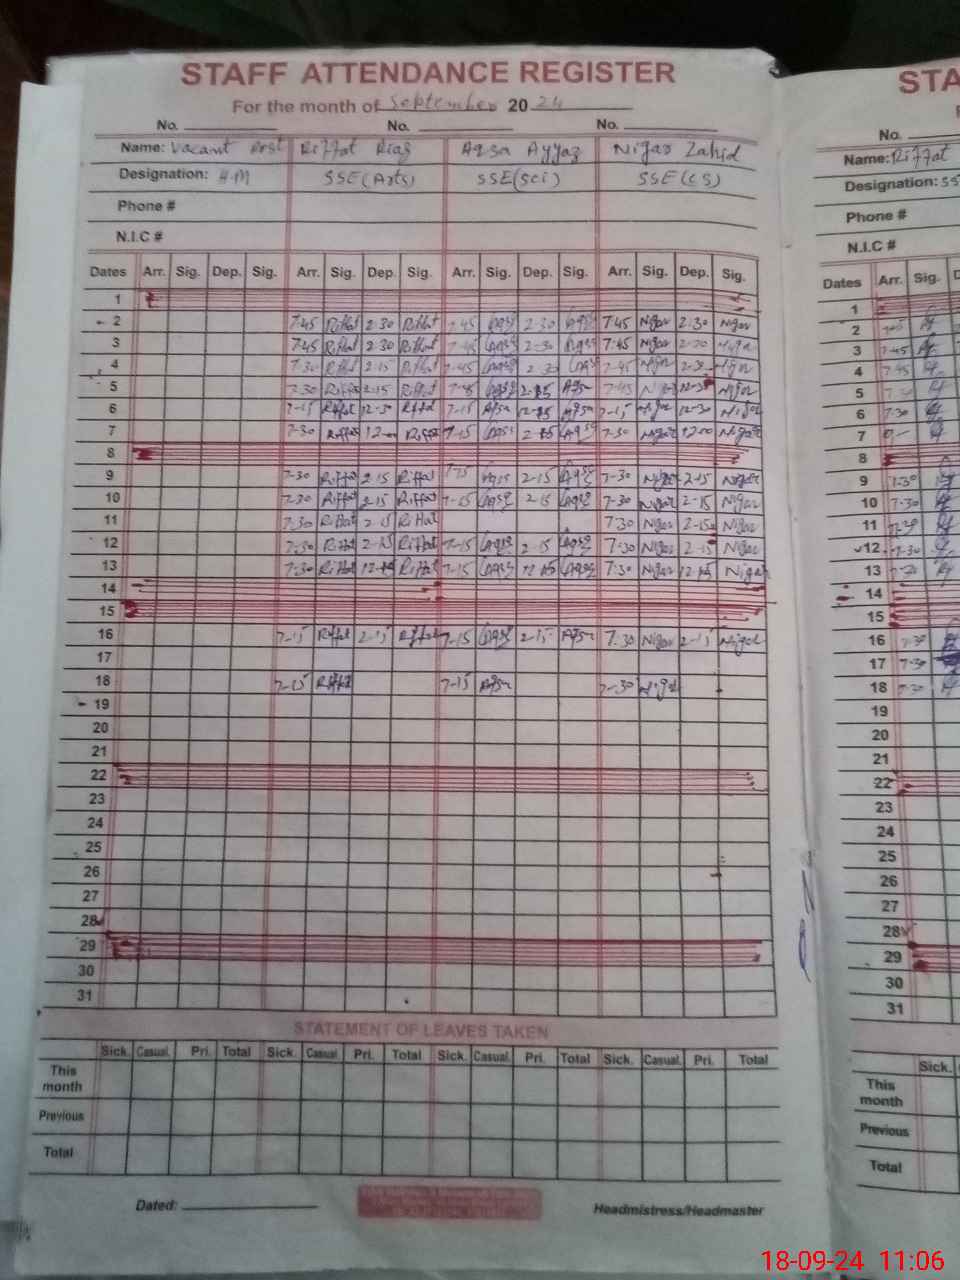 STAFF ATTENDANCE REGISTER
For the month of September 20 24
No. No. No.
Name: Vacant Post Riffat Riaz Aqsa Ayyaz Nigar Zahid
Designation: H.M SSE(Arts) SSE(Sci) SSE(CS)
Phone #
N.I.C #
Dates Arr. Sig. Dep. Sig. Arr. Sig. Dep. Sig. Arr. Sig. Dep. Sig. Arr. Sig. Dep. Sig.
1
2 7-45 Riffat 2-30 Riffat 7-45 Aqsa 2-30 Aqsa 7-45 Nigar 2-30 Nigar
3 7-45 Riffat 2-30 Riffat 7-45 Aqsa 2-30 Aqsa 7-45 Nigar 2-30 Nigar
4 7-30 Riffat 2-15 Riffat 7-45 Aqsa 2-30 Aqsa 7-45 Nigar 2-30 Nigar
5 7-30 Riffat 2-15 Riffat 7-45 Aqsa Aqsa 7-45 Nigar Nigar
6 7-15 Riffat 12-30 Riffat 7-15 Aqsa Aqsa 7-15 Nigar 12-30 Nigar
7 7-30 Riffat 12-00 Riffat 7-15 Aqsa Aqsa 7-30 Nigar 12-00 Nigar
8
9 7-30 Riffat 2-15 Riffat 7-15 Aqsa 2-15 Aqsa 7-30 Nigar 2-15 Nigar
10 7-30 Riffat 2-15 Riffat 7-15 Aqsa 2-15 Aqsa 7-30 Nigar 2-15 Nigar
11 7-30 Riffat 2-15 Riffat 7-30 Nigar 2-15 Nigar
12 7-30 Riffat 2-15 Riffat 7-15 Aqsa 2-15 Aqsa 7-30 Nigar 2-15 Nigar
13 7-30 Riffat Riffat 7-15 Aqsa Aqsa 7-30 Nigar Nigar
14
15
16 7-15 Riffat 2-15 Riffat 7-15 Aqsa 2-15 Aqsa 7-30 Nigar 2-15 Nigar
17
18 7-15 Riffat 7-15 Aqsa 7-30 Nigar
19
20
21
22
23
24
25
26
27
28
29
30
31
STATEMENT OF LEAVES TAKEN
Sick. Casual. Pri. Total Sick. Casual. Pri. Total Sick. Casual. Pri. Total Sick. Casual. Pri. Total
This
month
Previous
Total
Dated: Headmistress/Headmaster
STA
No.
Name: Riffat
Designation: SS
Phone #
N.I.C #
Dates Arr. Sig. D
1
2
3 7-45
4 7-45
5 7-30
6 7-30
7
8
9 7-30
10 7-30
11 7-30
12 7-30
13 7-30
14
15
16 7-30
17 7-30
18 7-30
19
20
21
22
23
24
25
26
27
28
29
30
31
Sick.
This
month
Previous
Total
18-09-24 11:06